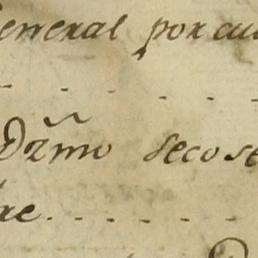 General por cu
Dzmo secose
ae.......